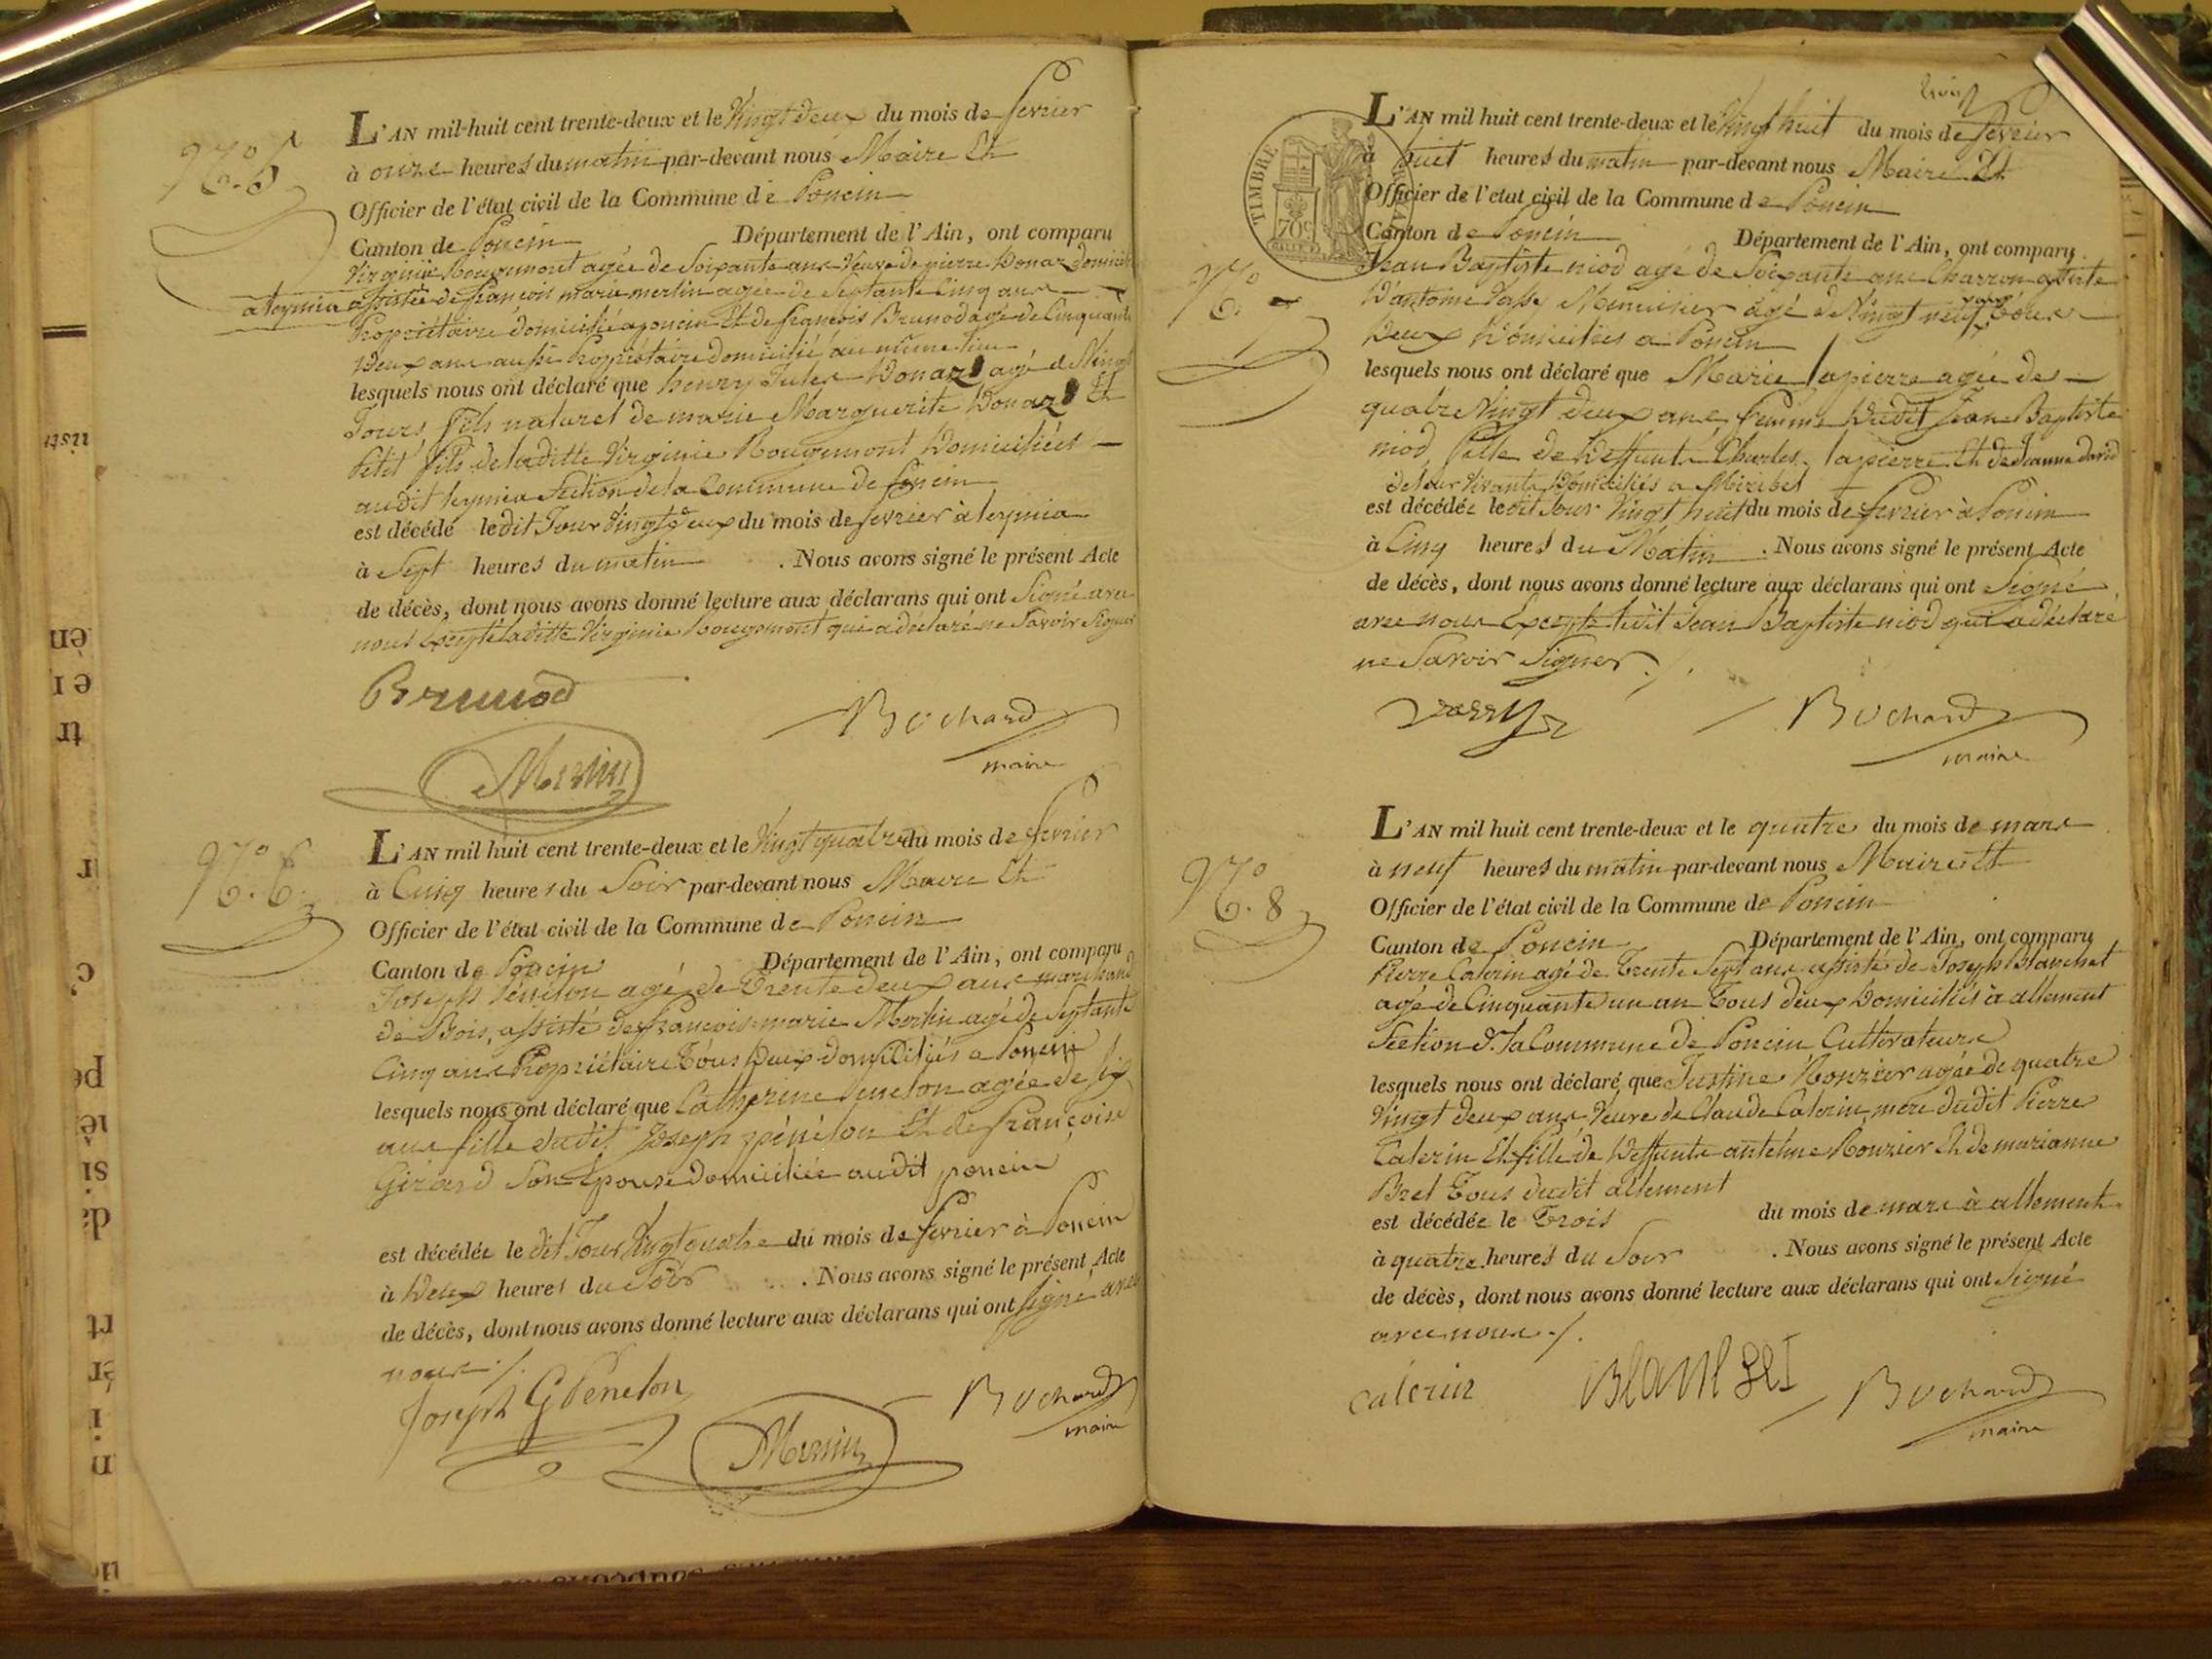 N.° 5
L'AN mil-huit cent trente-deux et le Vingt deux du mois de fevrier
à onze heures du matin par-devant nous Maire Et
Officier de l'état civil de la Commune de Poncin
Canton de Poncin Département de l'Ain, ont comparu
Virginie Rougemont agée de Soixante ans Veuve de pierre Donaz
a leymia assistée de françois marie merlin agée de Septante Cinq ans
Propriétaire domicilié a poncin Et de françois Brunod agé de Cinquante
Deux ans aussi Propriétaire domicilié au même lieu
lesquels nous ont déclaré que henry Jules Donaz agé de Vingt
Jours fils naturel de marie Marguerite Donaz Et
Petit fils de laditte Virginie Rougemont Domiciliées
audit leymia Section de la Commune de Poncin
est décédé ledit Jour Vingt Deux du mois de fevrier à leymia
à Sept heures du matin . Nous avons signé le présent Acte
de décès, dont nous avons donné lecture aux déclarans qui ont Signé avec
nous Excepté laditte Virginie Rougemont qui a déclaré ne Savoir Signer
Brunod
Bochard
maire
Merlin
N.° 6.
L'AN mil huit cent trente-deux et le Vingt quatre du mois de fevrier
à Cinq heures du Soir par-devant nous Maire Et
Officier de l'état civil de la Commune de Poncin
Canton de Poncin Département de l'Ain, ont comparu
Joseph Pénélon agé de Trente deux ans marchand
de Bois, assisté de françois marie Merlin agé de Septante
Cinq ans Propriétaire Tous Deux Domiciliés a Poncin
lesquels nous ont déclaré que Catherine Penelon agée de Six
ans fille dudit Joseph pénélon Et de françoise
Girard Son Epouse domiciliée audit poncin
est décédée le dit Jour Vingt quatre du mois de fevrier à Poncin
à Deux heures du Soir . Nous avons signé le présent Acte
de décès, dont nous avons donné lecture aux déclarans qui ont Signé avec
nous ./.
Joseph G Penelon
Bochard
maire
Merlin
TIMBRE ROYAL
70c
L'AN mil huit cent trente-deux et le Vingt huit du mois de fevrier
à huit heures du matin par-devant nous Maire Et
Officier de l'état civil de la Commune de Poncin
Canton de Poncin Département de l'Ain, ont comparu
N.°
Jean Baptiste niod agé de Soixante ans Charron assisté
D'antoine Menuisier agé de Vingt neuf ans Tous
Deux Domiciliés a Poncin
lesquels nous ont déclaré que Marie lapierre agée de
quatre Vingt deux ans femme Dudit Jean Baptiste
niod, fille de Deffunts Charles lapierre Et de Jeanne David
de leur Vivants Domiciliés a Miribel
est décédée ledit Jour Vingt huit du mois de fevrier à Poncin
à Cinq heures du Matin . Nous avons signé le présent Acte
de décès, dont nous avons donné lecture aux déclarans qui ont Signé
avec nous Excepté ledit Jean Baptiste niod qui a déclaré
ne Savoir Signer ./.
Bochard
maire
N.° 8
L'AN mil huit cent trente-deux et le quatre du mois de mars
à neuf heures du matin par-devant nous Maire Et
Officier de l'état civil de la Commune de Poncin
Canton de Poncin Département de l'Ain, ont comparu
Pierre Caterin agé de Trente Sept ans assisté de Joseph Blanchet
agé de Cinquante un an Tous deux Domiciliés à allement
Section de la Commune de Poncin Cultivateurs
lesquels nous ont déclaré que Justine Rouzier agée de quatre
Vingt deux ans Veuve de Claude Caterin mère dudit Pierre
Caterin Et fille de Deffunts antelme Rouzier Et de marianne
Bret Tous dudit allement
est décédée le Trois du mois de mars à allement
à quatre heures du Soir . Nous avons signé le présent Acte
de décès, dont nous avons donné lecture aux déclarans qui ont Signé
avec nous ./.
caterin
Blanchet
Bochard
maire